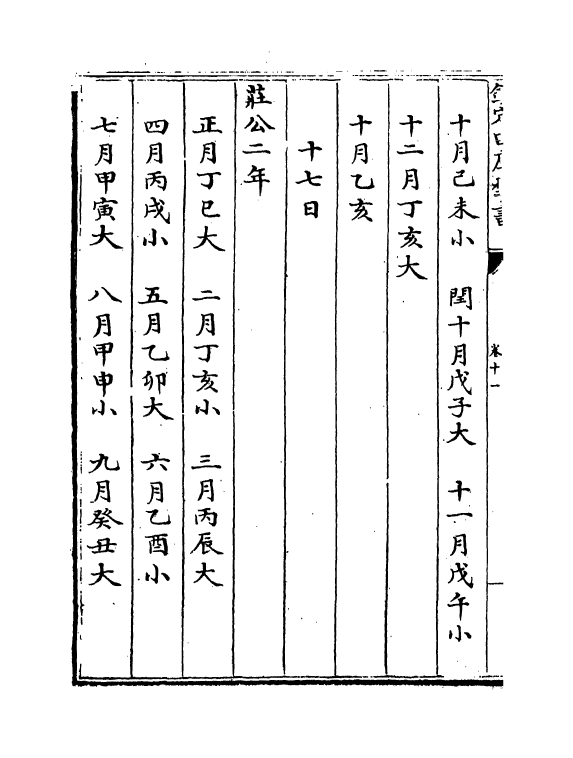 欽定四庫全書
卷十一
十月己未小　閏十月戊子大　十一月戊午小
十二月丁亥大
十月乙亥
十七日
莊公二年
正月丁巳大　二月丁亥小　三月丙辰大
四月丙戌小　五月乙卯大　六月乙酉小
七月甲寅大　八月甲申小　九月癸丑大